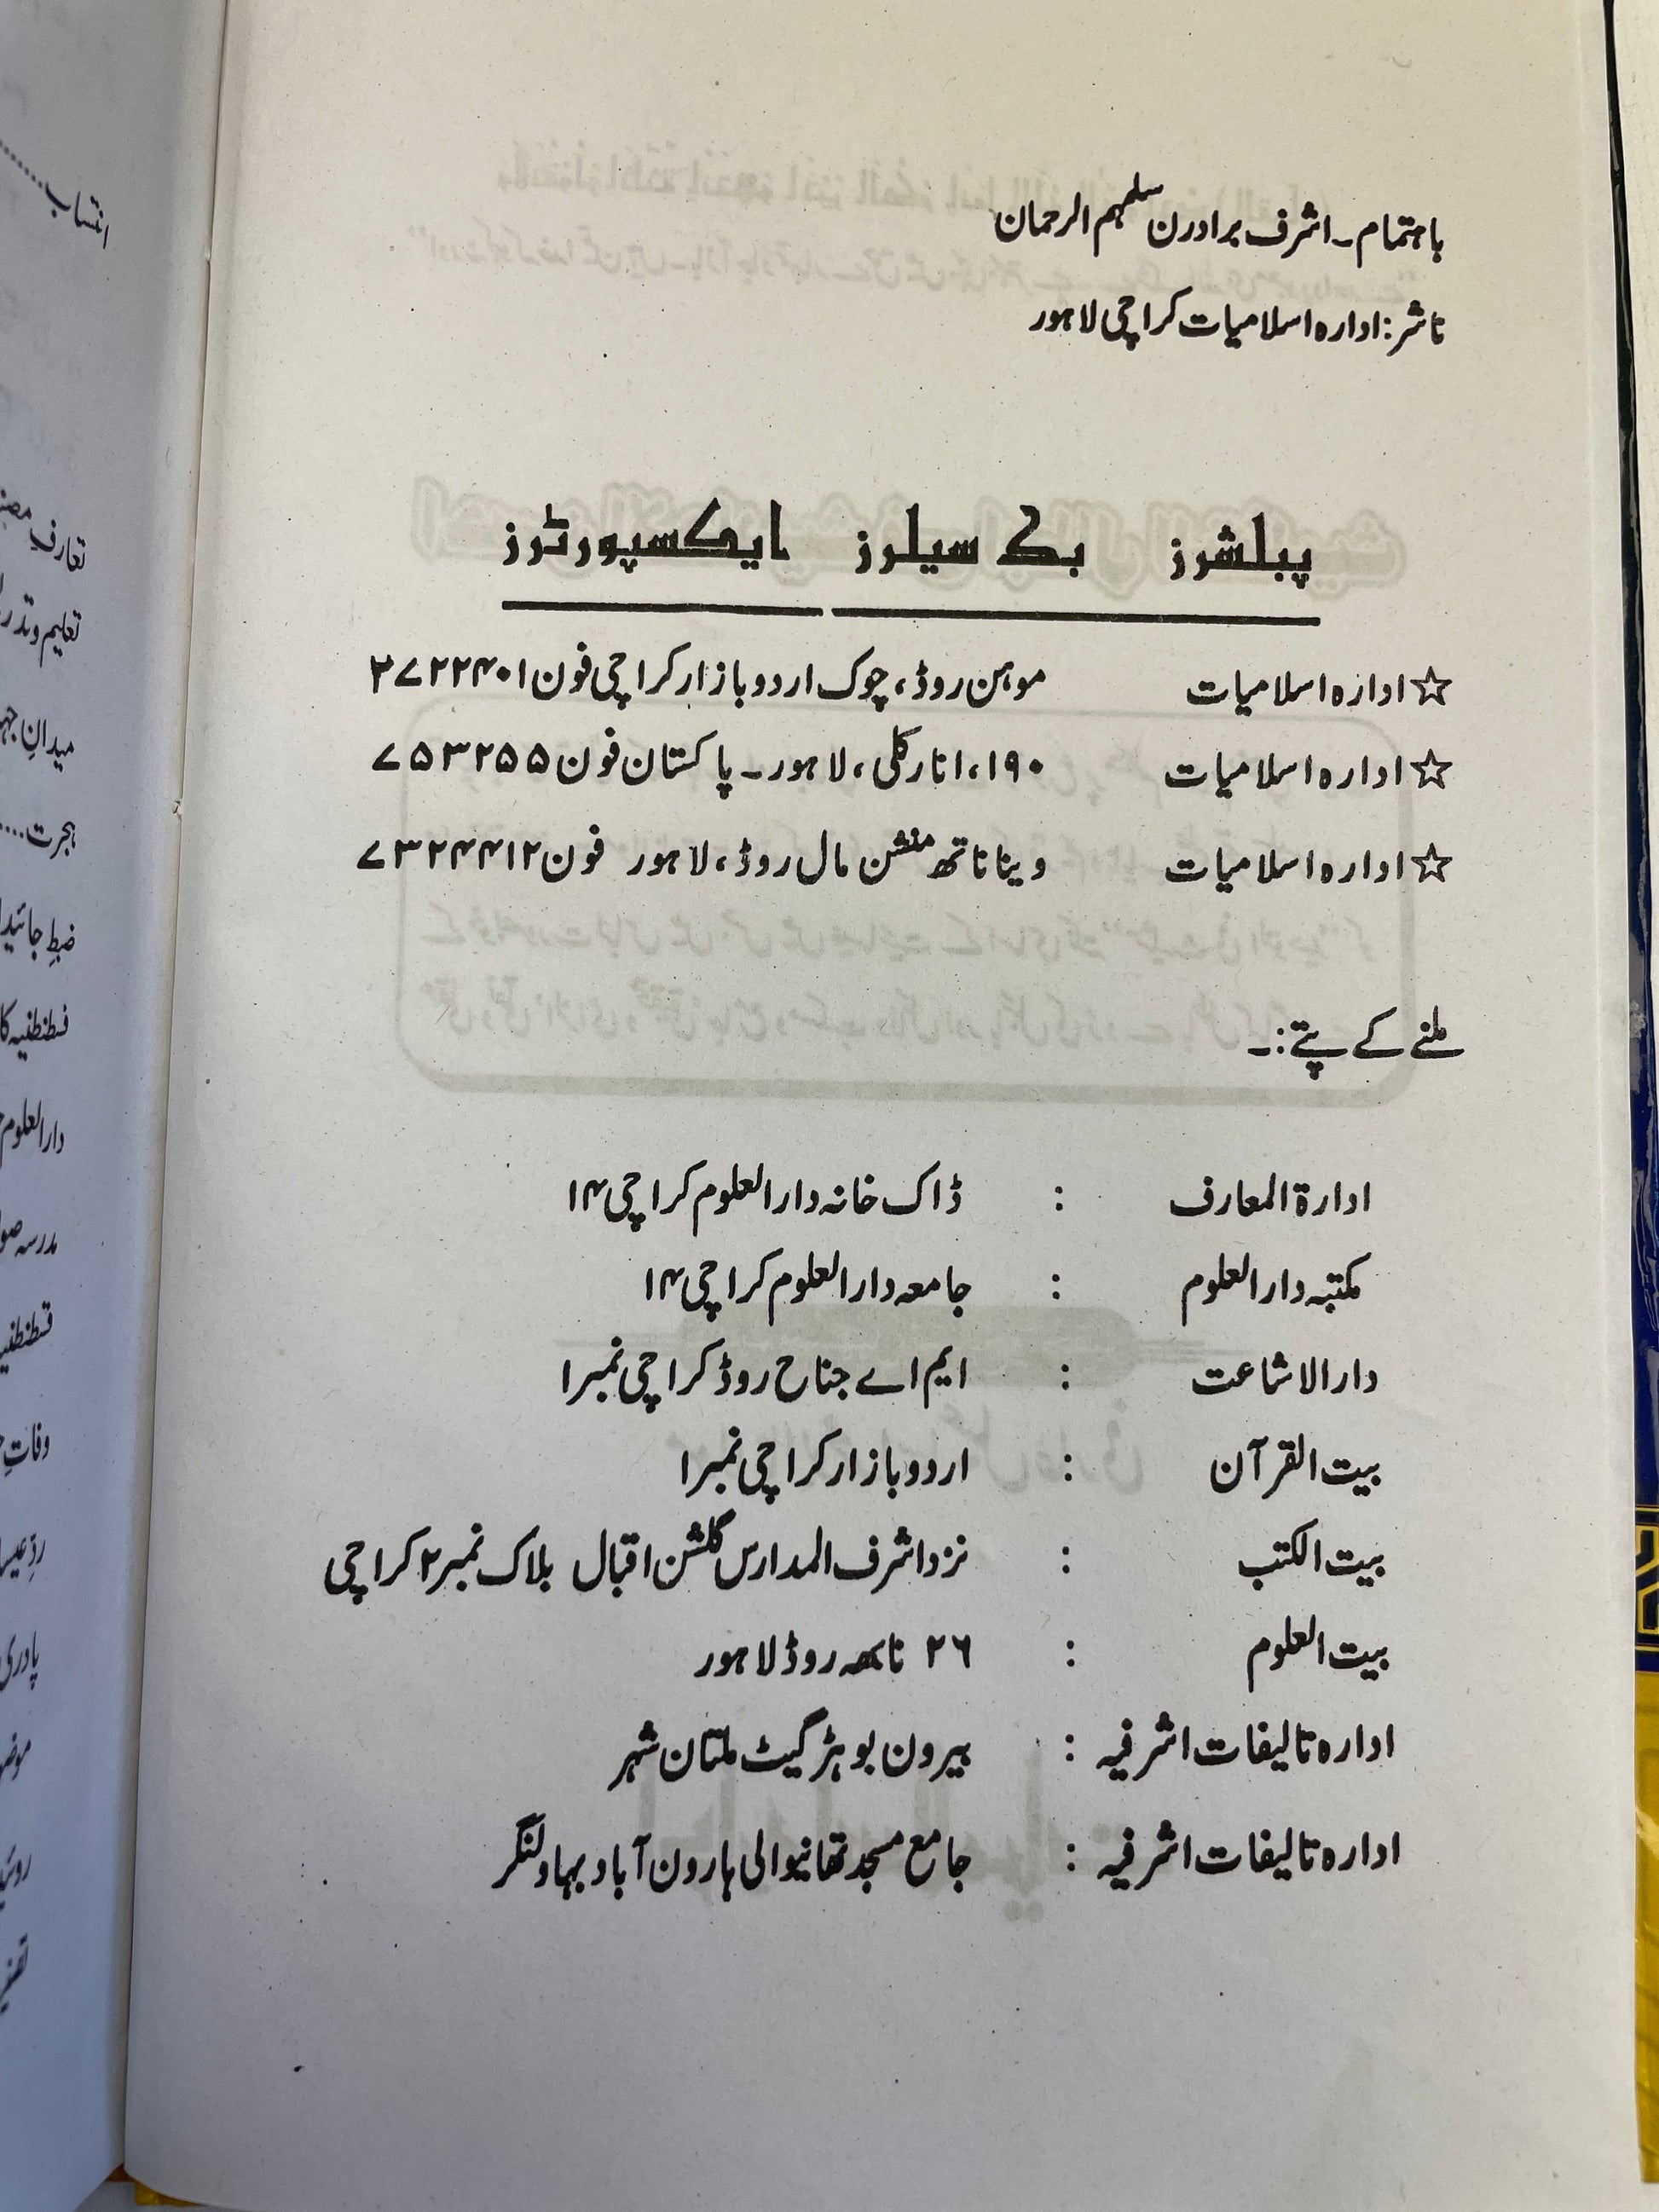 باہتمام۔اشرف برادرن سلمہم الرحمان
ناشر:ادارہ اسلامیات کراچی لاہور
پبلشرز بک سیلرز ایکسپورٹرز
☆ادارہ اسلامیات موہن روڈ، چوک اردو بازار کراچی فون ۲۷۲۲۴۰۱
☆ادارہ اسلامیات ۱۹۰، انارکلی، لاہور۔پاکستان فون ۷۵۳۲۵۵
☆ادارہ اسلامیات دینا ناتھ منشن مال روڈ، لاہور فون ۷۳۲۴۴۱۲
ملنے کے پتے:۔
ادارۃ المعارف : ڈاک خانہ دارالعلوم کراچی ۱۴
مکتبہ دارالعلوم : جامعہ دارالعلوم کراچی ۱۴
دارالاشاعت : ایم اے جناح روڈ کراچی نمبر ۱
بیت القرآن : اردو بازار کراچی نمبر ۱
بیت الکتب : نزد اشرف المدارس گلشن اقبال بلاک نمبر ۲ کراچی
بیت العلوم : ۲۶ نابھہ روڈ لاہور
ادارہ تالیفات اشرفیہ : بیرون بوہڑ گیٹ ملتان شہر
ادارہ تالیفات اشرفیہ : جامع مسجد تھانیوالی ہارون آباد بہاولنگر
انتساب
تعارفِ
میدانِ
ہجرت
ضبطِ
قسطنطنیہ کا
دارالعلوم
مدرسہ
وفاتِ